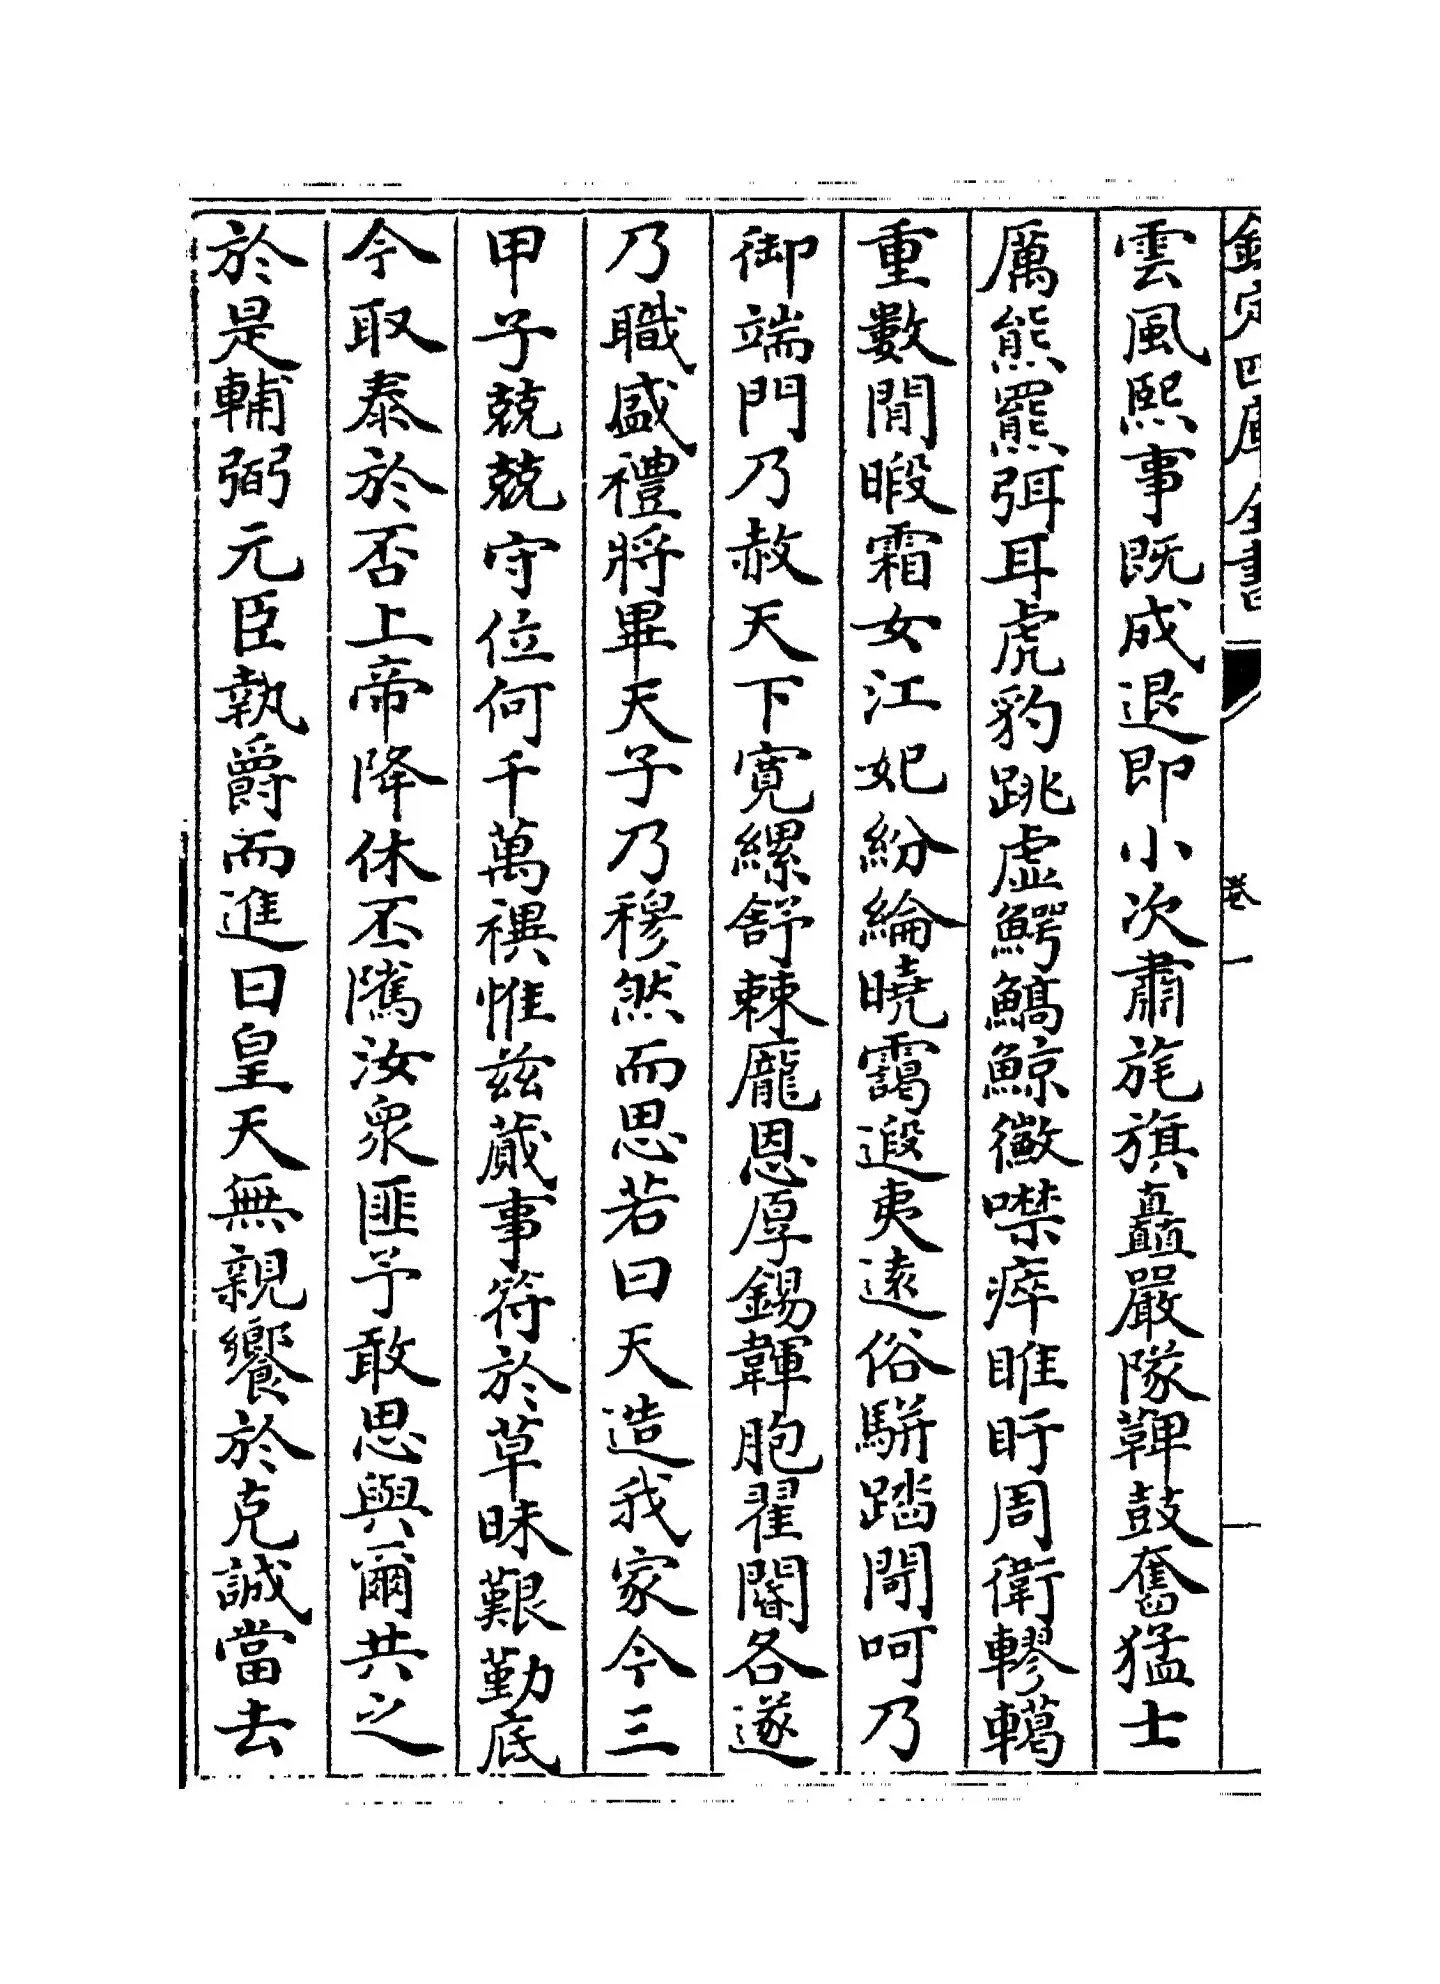 欽定四庫全書
卷一
雲風熙事既成退即小次肅旄旗矗嚴隊鞞鼓奮猛士
厲熊羆弭耳虎豹跳虚鰐鱎鯨黴噤瘁睢盱周衛轇轕
重數閒暇霜女江妃紛綸曉靄遐夷遠俗駢踏閜呵乃
御端門乃赦天下寛縲舒棘龎恩厚錫韗胞翟閽各遂
乃職盛禮將畢天子乃穆然而思若曰天造我家今三
甲子兢兢守位何千萬禩惟兹蕆事符於草昧艱勤底
今取泰於否上帝降休丕隲汝衆匪予敢思與爾共之
於是輔弼元臣執爵而進曰皇天無親饗於克誠當去